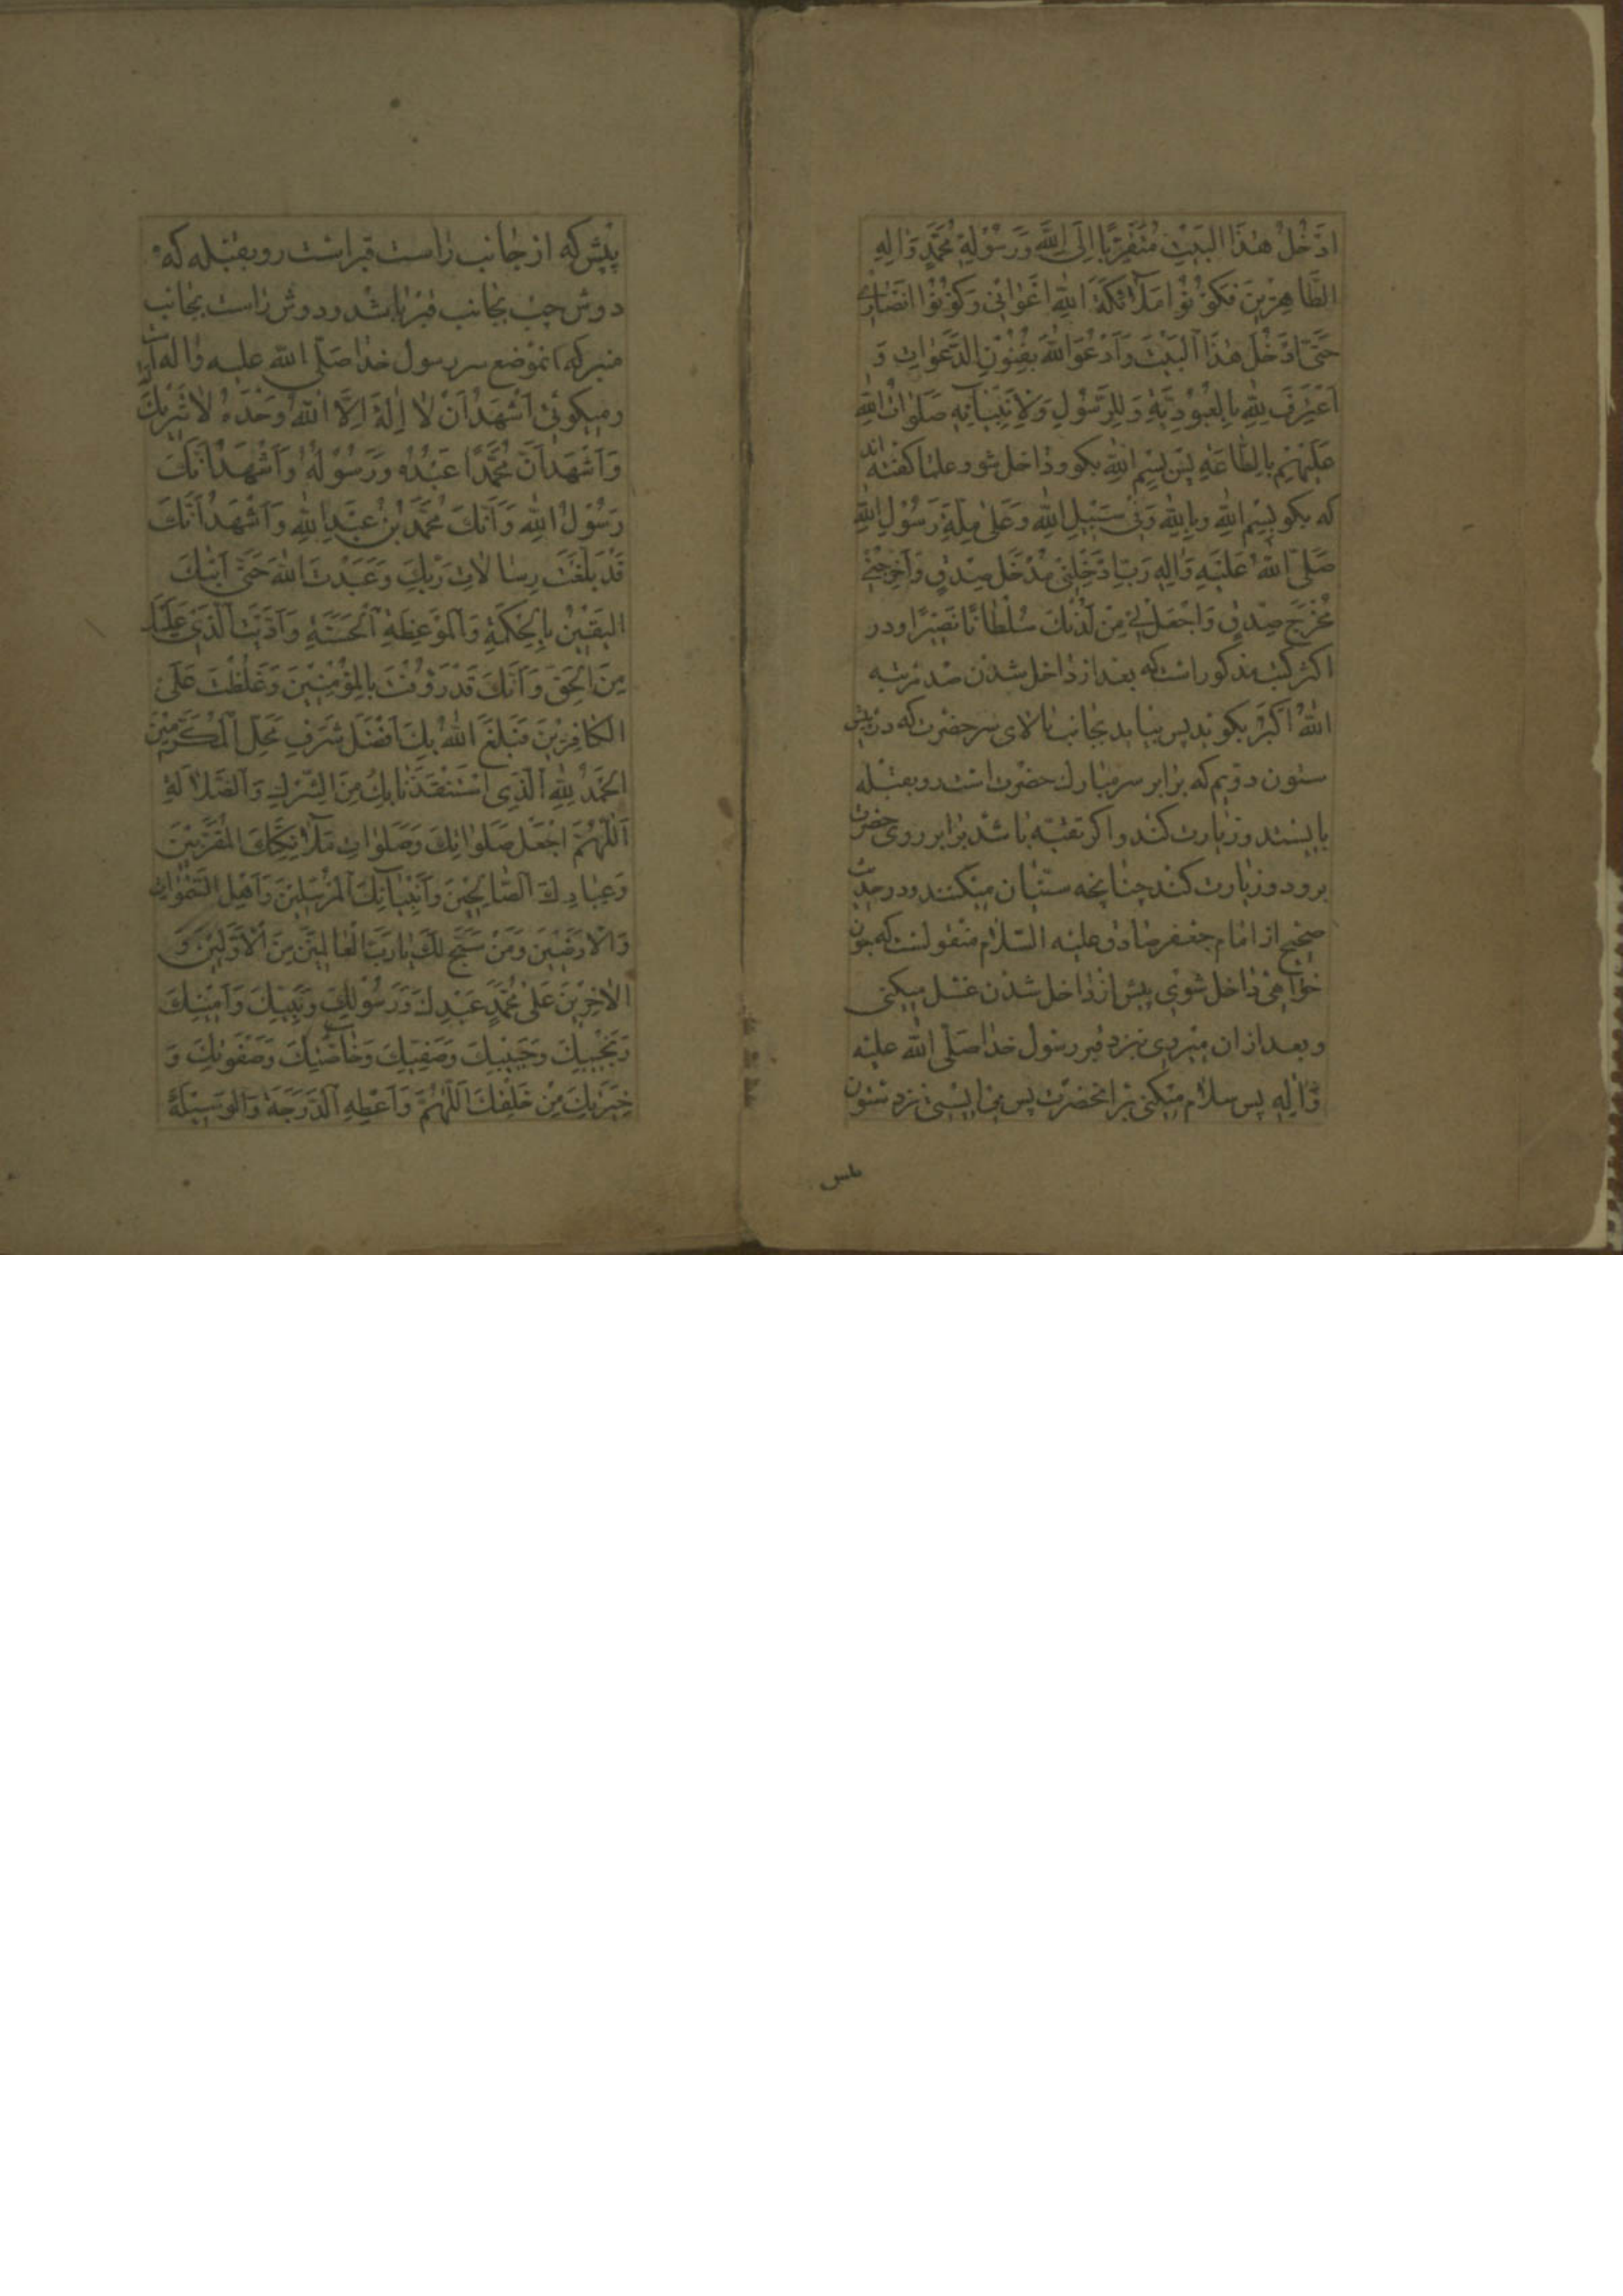 ادْخُلُ هٰذَا البَيْتَ مُتَقَرِّبًا اِلَى اللّٰهِ وَرَسُوْلِهِ مُحَمَّدٍ وَاٰلِهِ
الطَّاهِرِيْنَ فَكُوْنُوْا مَلاٰئِكَةَ اللّٰهِ اَعْوٰانِي وَكُوْنُوْا اَنْصٰارِي
حَتّٰى اَدْخُلَ هٰذَا الْبَيْتَ وَاَدْعُوَ اللّٰهَ بِفُنُوْنِ الدَّعَوٰاتِ وَ
اَعْتَرِفَ لِلّٰهِ بِالْعُبُوْدِيَّةِ وَلِلرَّسُوْلِ وَلِاَبْنٰائِهِ صَلَوٰاتُ اللّٰهِ
عَلَيْهِمْ بِالطّٰاعَةِ پس بِسْمِ اللّٰهِ بكو وداخل شو و علما كفته اند
كه بكو بِسْمِ اللّٰهِ وَبِاللّٰهِ وَفِي سَبِيْلِ اللّٰهِ وَعَلىٰ مِلَّةِ رَسُوْلِ اللّٰهِ
صَلَّى اللّٰهُ عَلَيْهِ وَاٰلِهِ رَبِّ اَدْخِلْنِي مُدْخَلَ صِدْقٍ وَاَخْرِجْنِي
مُخْرَجَ صِدْقٍ وَاجْعَلْ لِي مِنْ لَدُنْكَ سُلْطٰانًا نَصِيْرًا ودر
اكثر كتب مذكور است كه بعد از داخل شدن صد مرتبه
اللّٰهُ اَكْبَرُ بكويد پس بيايد بجانب بالاى سر حضرت كه در پيش
ستون دويم كه برابر سر مبارك حضرت است رو بقبله
بايستد وزيارت كند واكر تقيّه باشد برابر روى حضرت
برود وزيارت كند چنانچه سنّيان ميكنند ودر حديث
صحيح از امام جعفر صادق عليه السّلام منقولست كه چون
خواهى داخل شوى پيش از داخل شدن غسل ميكنى
وبعد از ان ميروى نزد قبر رسول خدا صَلَّى اللّٰه عليه
وَاٰلِهِ پس سلام ميكنى بر انحضرت پس مى ايستى نزد ستون
پيش كه از جانب راست قبر است رو بقبله كه
دوش چپ بجانب قبر باشد ودوش راست بجانب
منبر كه انموضع سر رسول خدا صَلَّى اللّٰه عليه واله است
وميكوئى اَشْهَدُ اَنْ لاٰ اِلٰهَ اِلاَّ اللّٰهُ وَحْدَهُ لاٰ شَرِيْكَ
وَاَشْهَدُ اَنَّ مُحَمَّدًا عَبْدُهُ وَرَسُوْلُهُ وَاَشْهَدُ اَنَّكَ
رَسُوْلُ اللّٰهِ وَاَنَّكَ مُحَمَّدُ بْنُ عَبْدِ اللّٰهِ وَاَشْهَدُ اَنَّكَ
قَدْ بَلَّغْتَ رِسٰالاٰتِ رَبِّكَ وَعَبَدْتَ اللّٰهَ حَتّٰى اَتٰيكَ
الْيَقِيْنُ بِالْحِكْمَةِ وَالْمَوْعِظَةِ الْحَسَنَةِ وَاَدَّيْتَ الَّذِي عَلَيْكَ
مِنَ الْحَقِّ وَاَنَّكَ قَدْ رَؤُفْتَ بِالْمُؤْمِنِيْنَ وَغَلُظْتَ عَلَى
الْكٰافِرِيْنَ فَبَلَّغَ اللّٰهُ بِكَ اَفْضَلَ شَرَفِ مَحَلِّ الْمُكَرَّمِيْنَ
الْحَمْدُ لِلّٰهِ الَّذِي اسْتَنْقَذَنٰا بِكَ مِنَ الشِّرْكِ وَالضَّلاٰلَةِ
اَللّٰهُمَّ اجْعَلْ صَلَوٰاتِكَ وَصَلَوٰاتِ مَلاٰئِكَتِكَ الْمُقَرَّبِيْنَ
وَعِبٰادِكَ الصّٰالِحِيْنَ وَاَنْبِيٰائِكَ الْمُرْسَلِيْنَ وَاَهْلِ السَّمٰوٰاتِ
وَالْاَرَضِيْنَ وَمَنْ سَبَّحَ لَكَ يٰا رَبَّ الْعٰالَمِيْنَ مِنَ الْاَوَّلِيْنَ وَ
الْاٰخِرِيْنَ عَلىٰ مُحَمَّدٍ عَبْدِكَ وَرَسُوْلِكَ وَنَبِيِّكَ وَاَمِيْنِكَ
وَنَجِيْبِكَ وَحَبِيْبِكَ وَصَفِيِّكَ وَخٰاصَّتِكَ وَصَفْوَتِكَ وَ
خِيَرَتِكَ مِنْ خَلْقِكَ اَللّٰهُمَّ وَاَعْطِهِ الدَّرَجَةَ وَالْوَسِيْلَةَ